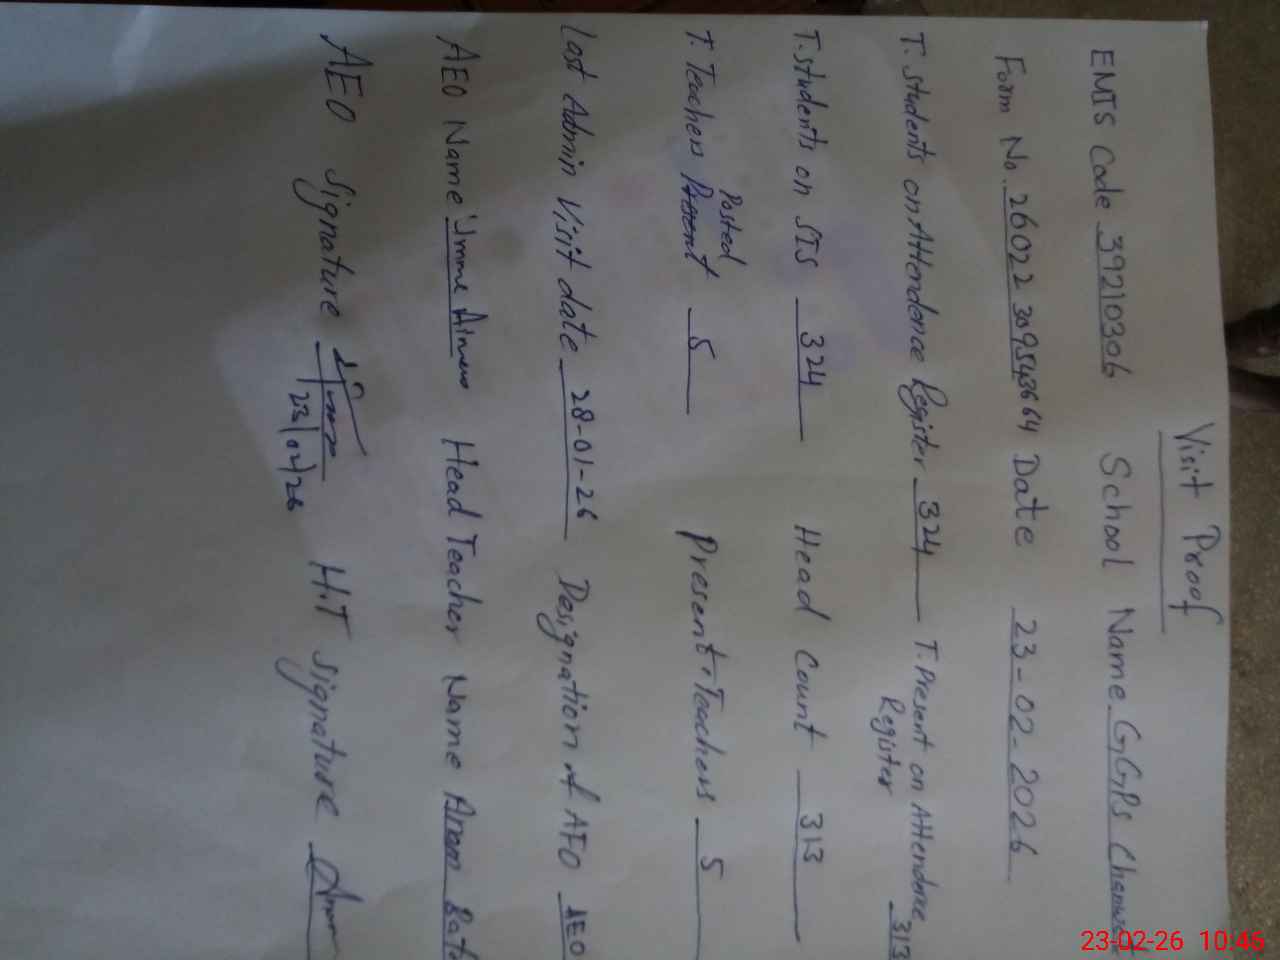 Visit Proof
EMIS Code 39210306 School Name GGPS
Form No. 26022 309543664 Date 23-02-2026
T. students on Attendence Register 324 T. Present on Attendence Register 313
T. students on SIS 324 Head Count 313
T. Teachers Posted 5 Present Teachers 5
Last Admin Visit date 28-01-26 Designation of AEO AEO
AEO Name Head Teacher Name Anam
AEO Signature H.T signature
23/02/26
23-02-26 10:46